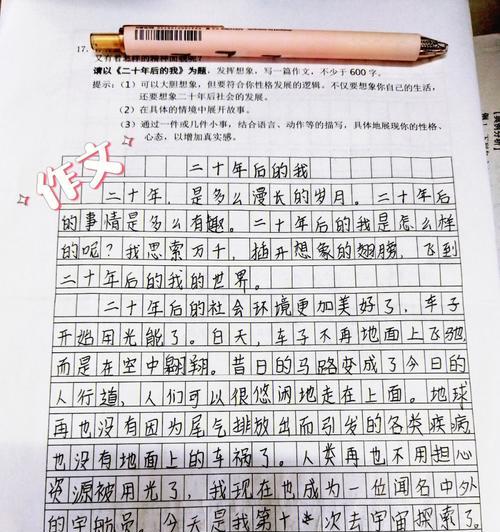 17.
又有着怎样的精神面貌呢？
请以《二十年后的我》为题，发挥想象，写一篇作文，不少于600字。
提示：（1）可以大胆想象，但要符合你性格发展的逻辑。不仅要想象你自己的生活，
还要想象二十年后社会的发展。
（2）在具体的情境中展开故事。
（3）通过一件或几件小事，结合语言、动作等的描写，具体地展现你的性格、
心态，以增加真实感。
作文
二十年后的我
二十年，是多么漫长的岁月。二十年后
的事情是多么有趣。二十年后的我是怎么样
的呢？我思索万千，插开想象的翅膀，飞到
二十年后的我的世界。
二十年后的社会环境更加美好了，车子
开始用光能了。白天，车子不再地面上飞驰
而是在空中翱翔。昔日的马路变成了今日的
人行道，人们可以很悠闲地走在上面。地球
再也没有因为尾气排放出而引发的各类疾病
也没有地面上的车祸了。人类再也不用担心
资源被用光了，我现在也成为一位闻名中外
的宇航员。今天是我第十*次去宇宙探索了。